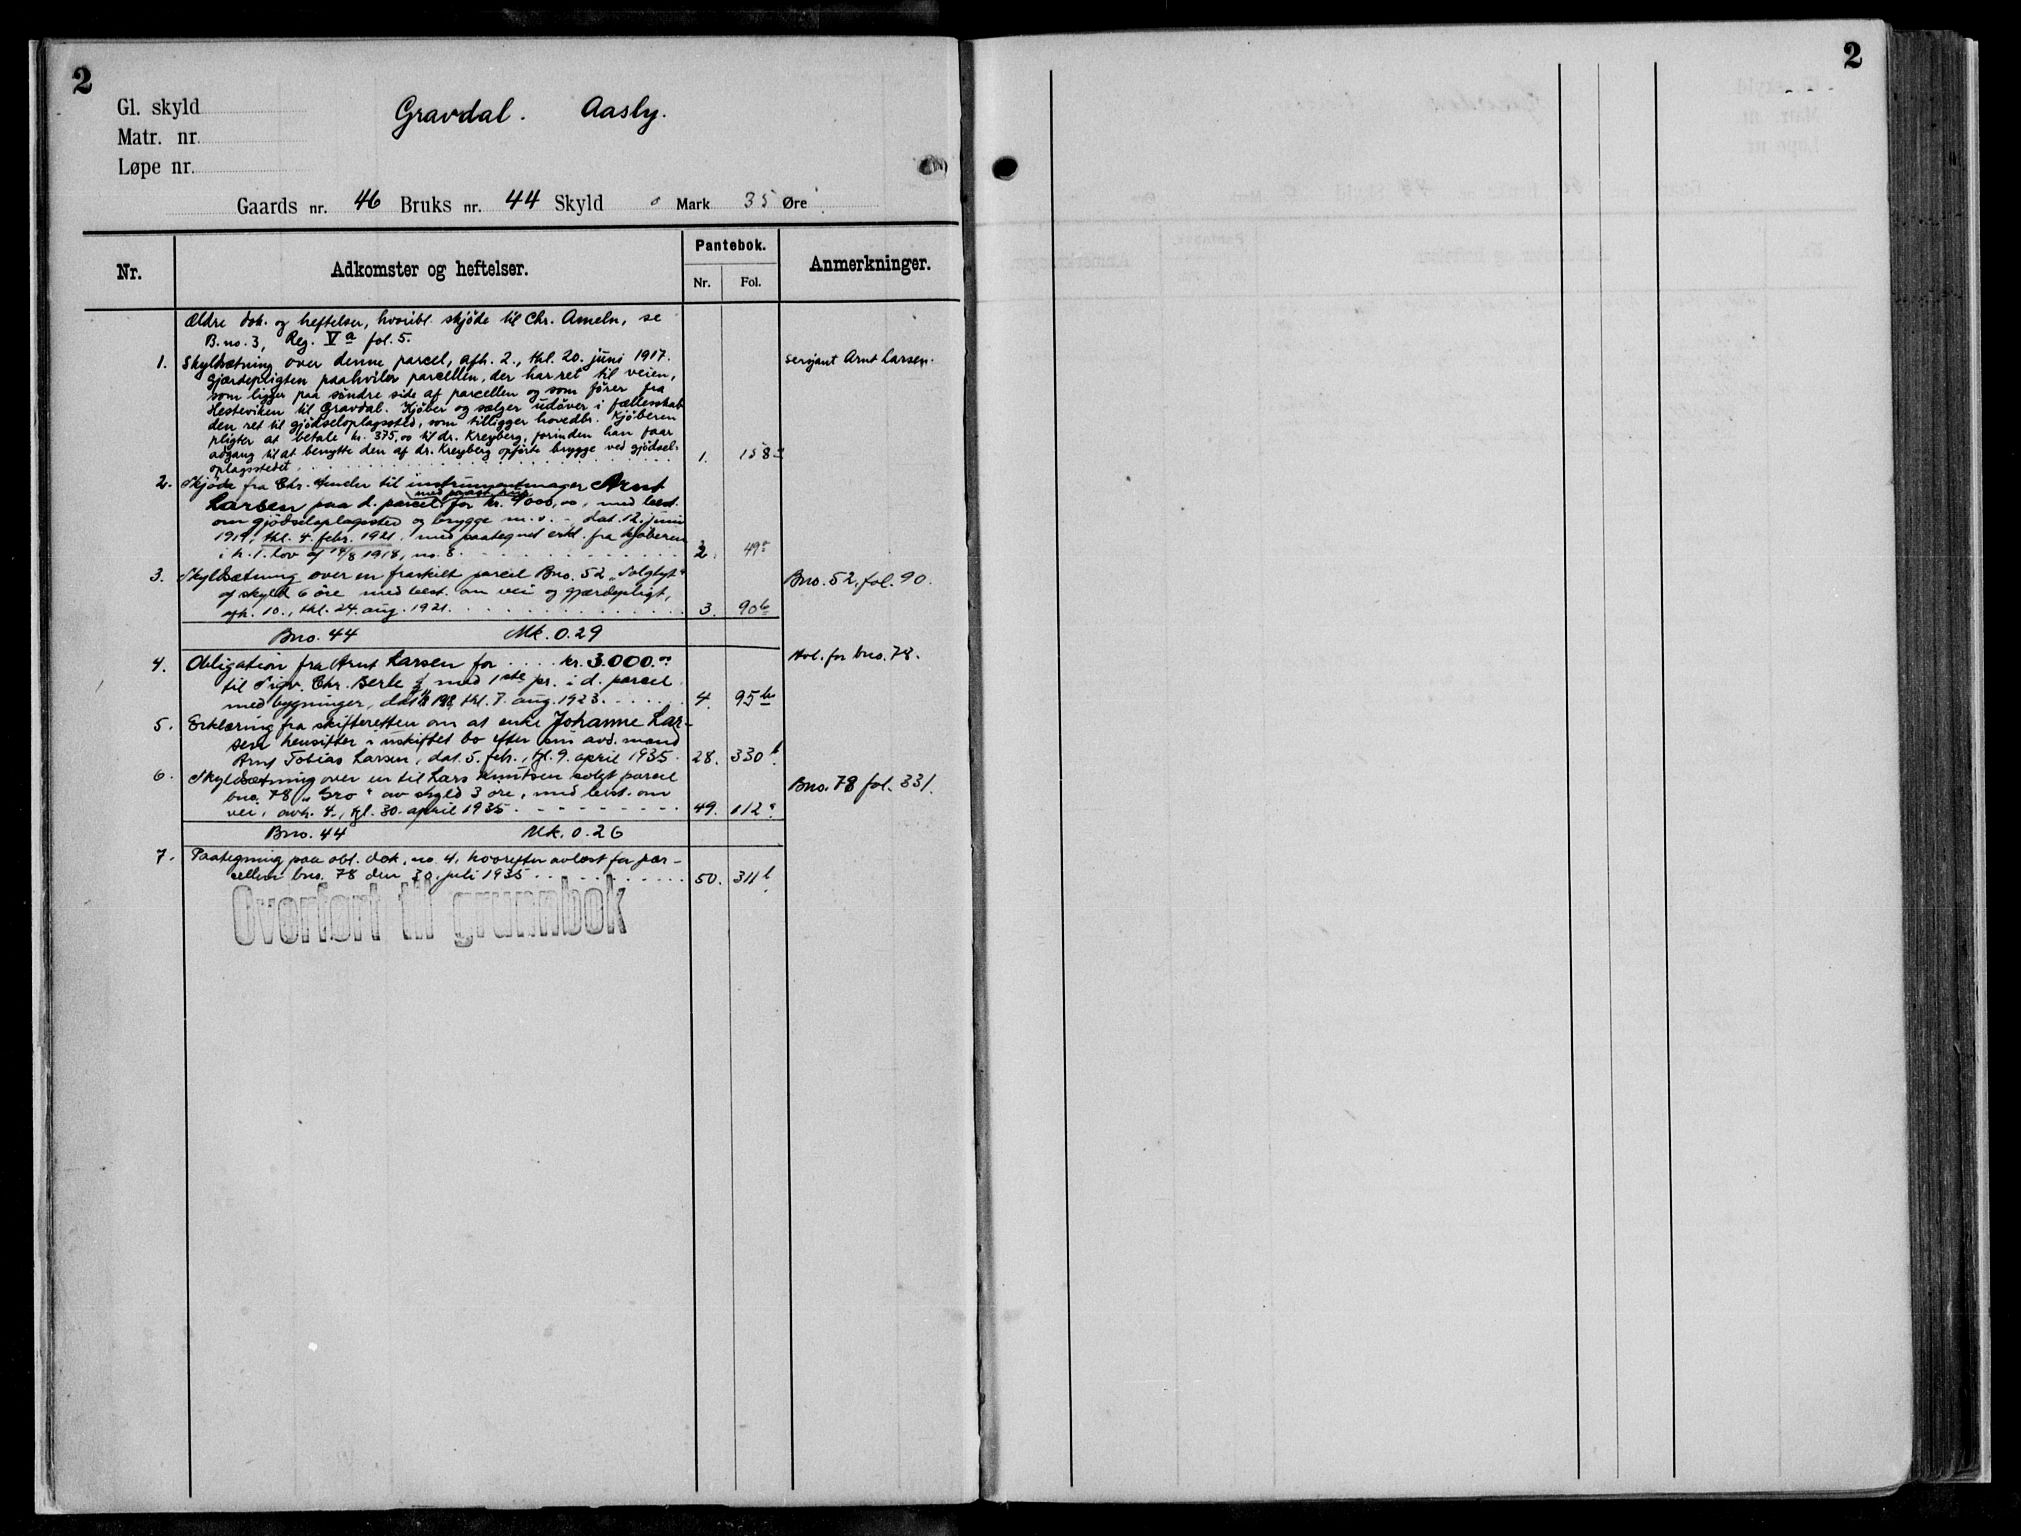 2
2
Gl. skyld
Gravdal. Aasly.
Matr. nr.
Løpe nr.
Gaards nr. 46 Bruks nr. 44 Skyld 0 Mark 35 Øre
Nr. Adkomster og heftelser. Pantebok. Anmerkninger.
Nr. Fol.
Ældre dok. og heftelser, hvoribl. skjøde til Chr. Ameln, se
B.no. 3, Reg. V a fol. 5.
1. Skyldsætning over denne parcel, afh. 2., thl. 20. juni 1917. Sersjant Arnt Larsen.
Gjærdepligten paahviler parcellen, der har ret til veien,
som ligger paa søndre side af parcellen og som fører fra
Hesteviken til Gravdal. Kjøber og sælger udøver i fællesskab
den ret til gjødseloplagssted, som tilligger hovedbr. Kjøberen
pligter at betale kr. 375,00 til dr. Kreyberg, forinden han faar
adgang til at benytte den af dr. Kreyberg opførte brygge ved gjødsel-
oplagsstedet. 1. 158
2. Skjøde fra Chr. Ameln til instrumentmager Arnt
Larsen paa d. parcel for kr. 4000,00, med best.
om gjødseloplagssted og brygge m.v. - dat. 12. juni
1919, thl. 4. febr. 1921. med paategnet erkl. fra kjøberen
i h. t. lov af 14/8 1918, no. 8. 2. 49
3. Skyldsætning over en fraskilt parcel Bno. 52 "Solglyt" Bno. 52, fol. 90.
af skyld 6 øre med best. om vei og gjærdepligt,
afh. 10., thl. 24. aug. 1921. 3. 90 b
Bno. 44 Mk. 0.29
4. Obligation fra Arnt Larsen for .... kr. 3.000.00 Avl. for bno. 78.
til Sigv. Chr. Berle med 1ste pr. i d. parcel
med bygninger, thl. 7. aug. 1923. 4. 95 b
5. Erklæring fra skifteretten om at enke Johanne Lar-
sen hensitter i uskiftet bo efter sin avd. mand
Arnt Tobias Larsen, dat. 5. feb., tgl. 9. april 1935. 28. 330 b
6. Skyldsætning over en til Lars Knutsen solgt parcel Bno. 78 fol. 331.
bno. 78 "Gro" av skyld 3 øre, med best. om
vei, avh. 4., tgl. 30. april 1935. 49. 112 a
Bno. 44 Mk. 0.26
7. Paategning paa obl. dok. no. 4, hvorefter avløst for par-
cellen bno. 78 den 30. juli 1935 50. 311 b
Overført til grunnbok